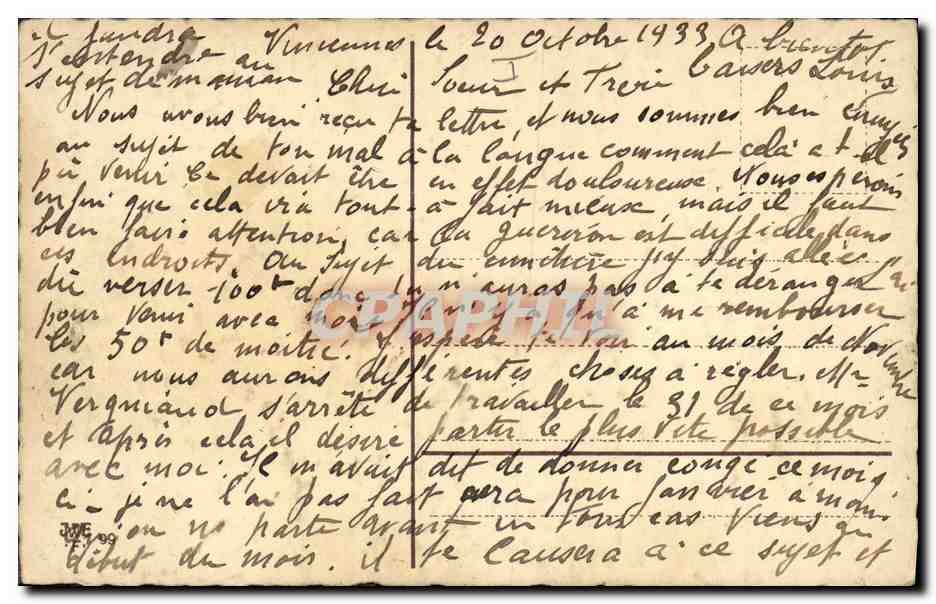 Vincennes le 20 Octobre 1933
I
Chère Soeur et Frère
Nous avons bien reçu ta lettre, et nous sommes bien
au sujet de ton mal à la langue comment cela a t-il
pû venir Ce devait être en effet douloureuse. Nous espérons
enfin que cela ira tout-à fait mieux, mais il faut
bien faire attention, car la guérison est difficile dans
ces endroits. Au sujet du cimetière j'y suis allée
dû verser 100f donc tu n'auras pas à te déranger
pour venir avec moi, tu n'y a qu'à me rembourser
les 50f de moitié. J'espère te voir au mois de Novembre
car nous aurons différentes choses à régler. Mr
Vergniaud s'arrête de travailler le 31 de ce mois
et après cela il désire partir le plus vite possible
avec moi. Il m'avait dit de donner congé ce mois
ci je ne l'ai pas fait sera pour Janvier à moins
qu'on ne parte avant en tous cas viens au
début du mois. il te causera à ce sujet et
il faudra
s'entendre au
sujet de maman
A bientôt
baisers Louis
JWE
99
CPAPHIL